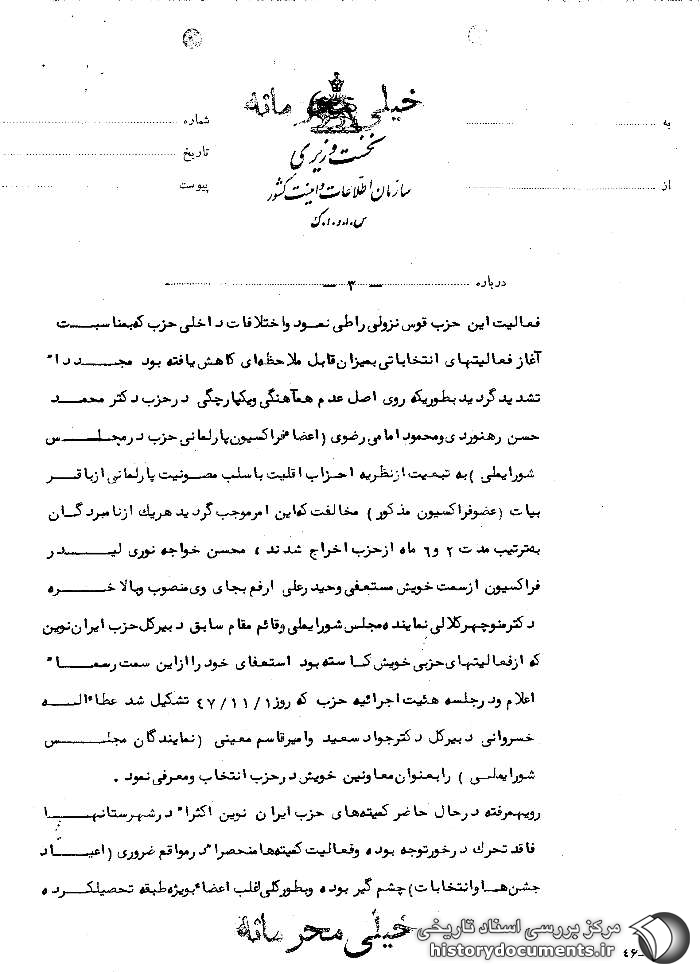 خیلی محرمانه
به
شماره
نخست وزیری
تاریخ
سازمان اطلاعات و امنیت کشور
از
پیوست
س.ا.و.ا.ک
درباره
— ۳ —
فعالیت این حزب قوس نزولی راطی نمود واختلافات داخلی حزب که بمناسبت
آغاز فعالیتهای انتخاباتی بمیزان قابل ملاحظه‌ای کاهش یافته بود مجددا"
تشدید گردید بطوریکه روی اصل عدم هماهنگی ویکپارچگی در حزب دکتر محمد
حسن رهنوردی ومحمود امامی رضوی (اعضاء فراکسیون پارلمانی حزب در مجلس
شورایملی) به تبعیت از نظریه احزاب اقلیت با سلب مصونیت پارلمانی از باقر
بیات (عضو فراکسیون مذکور) مخالفت که این امر موجب گردید هریک از نامبردگان
به‌ترتیب مدت ۲ و ۶ ماه از حزب اخراج شدند، محسن خواجه نوری لیدر
فراکسیون از سمت خویش مستعفی وحیدرعلی ارفع بجای وی منصوب وبالاخره
دکتر منوچهر کلالی نماینده مجلس شورایملی وقائم مقام سابق دبیرکل حزب ایران نوین
که از فعالیتهای حزبی خویش کاسته بود استعفای خود را از این سمت رسما"
اعلام ودر جلسه هئیت اجرائیه حزب که روز ۴۷/۱۱/۱ تشکیل شد عطاءاله
خسروانی دبیرکل دکتر جواد سعید وامیرقاسم معینی (نمایندگان مجلس
شورایملی) را بعنوان معاونین خویش در حزب انتخاب ومعرفی نمود.
رویهمرفته در حال حاضر کمیته‌های حزب ایران نوین اکثرا" در شهرستانها
فاقد تحرک در خور توجه بوده وفعالیت کمیته‌ها منحصرا" در مواقع ضروری (اعیاد
جشن‌ها وانتخابات) چشم گیر بوده وبطورکلی اغلب اعضاء بویژه طبقه تحصیلکرده
خیلی محرمانه
مرکز بررسی اسناد تاریخی
historydocuments.ir
۴۶